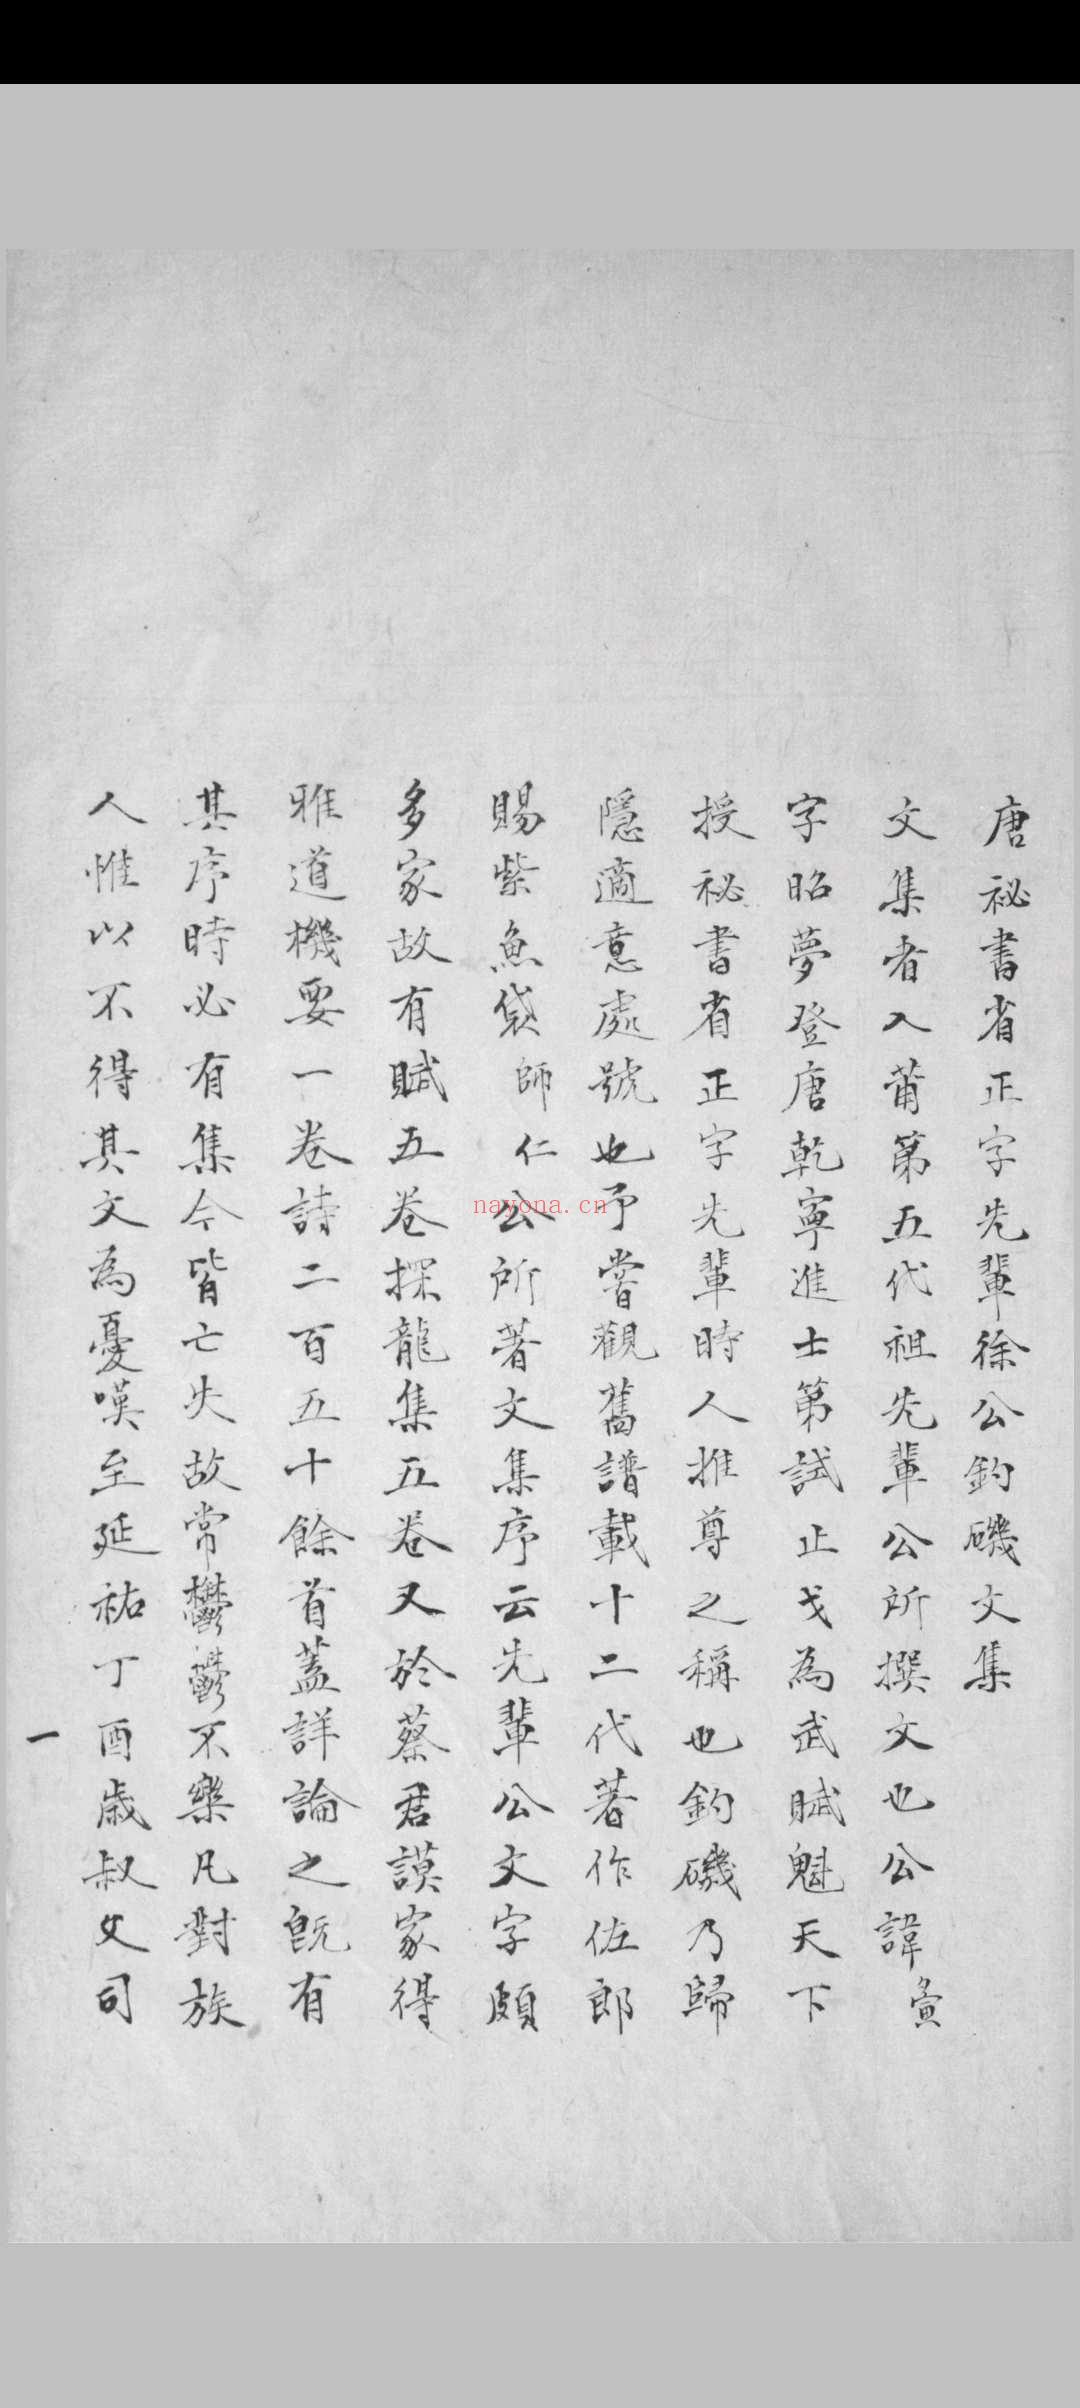 唐祕書省正字先輩徐公釣磯文集
文集者入莆第五代祖先輩公所撰文也公諱寅
字昭夢登唐乾寧進士第試止戈為武賦魁天下
授祕書省正字先輩時人推尊之稱也釣磯乃歸
隱適意處號也予嘗觀舊譜載十二代著作佐郎
賜紫魚袋師仁公所著文集序云先輩公文字頗
多家故有賦五卷探龍集五卷又於蔡君謨家得
雅道機要一卷詩二百五十餘首蓋詳論之既有
其序時必有集今皆亡失故常鬱鬱不樂凡對族
人惟以不得其文為憂嘆至延祐丁酉歲叔父司
一
nayona.cn